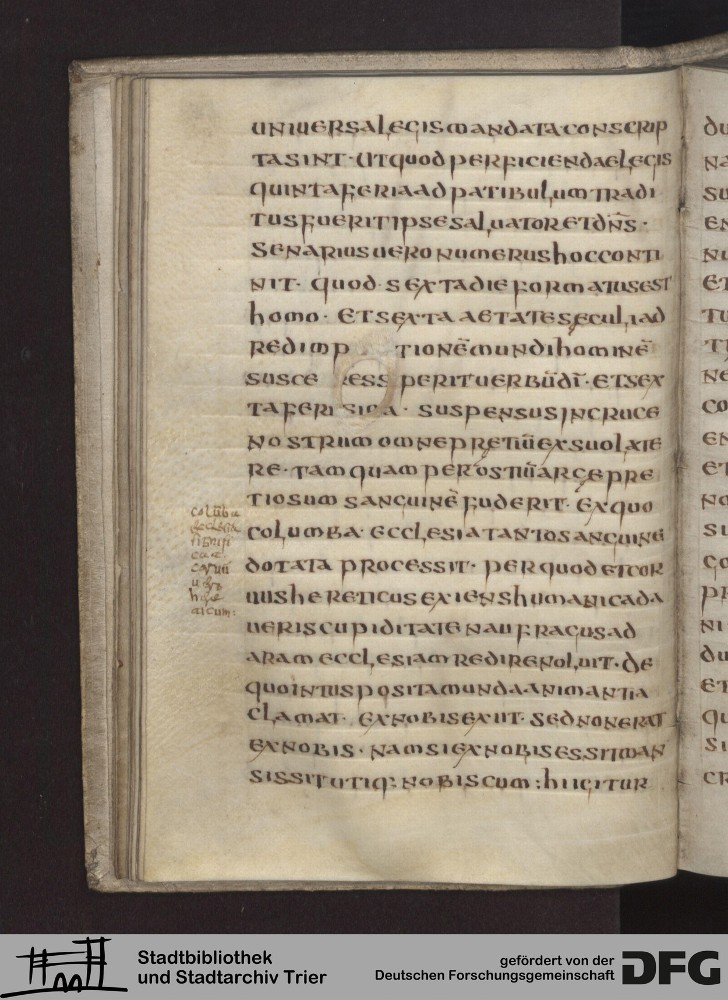 uniuersalegismandataconscrip
tasint · utquodperficiendaelegis
quintaferiaadpatibulumtradi
tusfueritipsesaluatoretdn̄s ·
senariusueronumerushocconti
nit · quod sextadieformatusest
homo · etsextaaetateseculiad
redimp tionēmundihominē
susce perituerbūdī · etsex
taferi suspensusincruce
nostrumomnepretiūexsuolate
re · tamquamperostiūarcepre
tiosumsanguinēfuderit · exquo
columba · ecclesiatantosanguine
dotata processit · perquodetcor
uushereticusexienshumanicada
ueriscupiditatenaufragusad
aramecclesiamredirenoluit · de
quointuspositamundaanimantia
clamat · exnobisexiit · sednonerat
exnobis · namsiexnobisessitman
sissitutiq: nobiscum : hiigitur
colūba
ecclesiā
signifi
cat
coruū
Stadtbibliothek
und Stadtarchiv Trier
gefördert von der
Deutschen Forschungsgemeinschaft
DFG